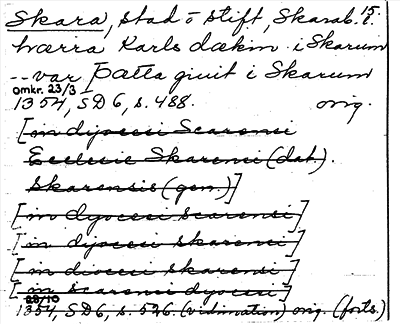 Skara, stad o stift, Skarab. l.
15.
hærra Karls dækin i Skarum
-- var þætta giuit i Skarum
omkr. 23/3
1354, SD 6, s. 488. orig.
[in dyocesi Scarensi
Ecclesie Skarensi (dat.).
Skarensis (gen.)]
[in dyocesi scarensi]
[in dyocesi skarensi]
[in diocesi skarensi]
[in scarensi dyocesi]
28/10
1354, SD 6, s. 526. (vidimation) orig. (forts.)